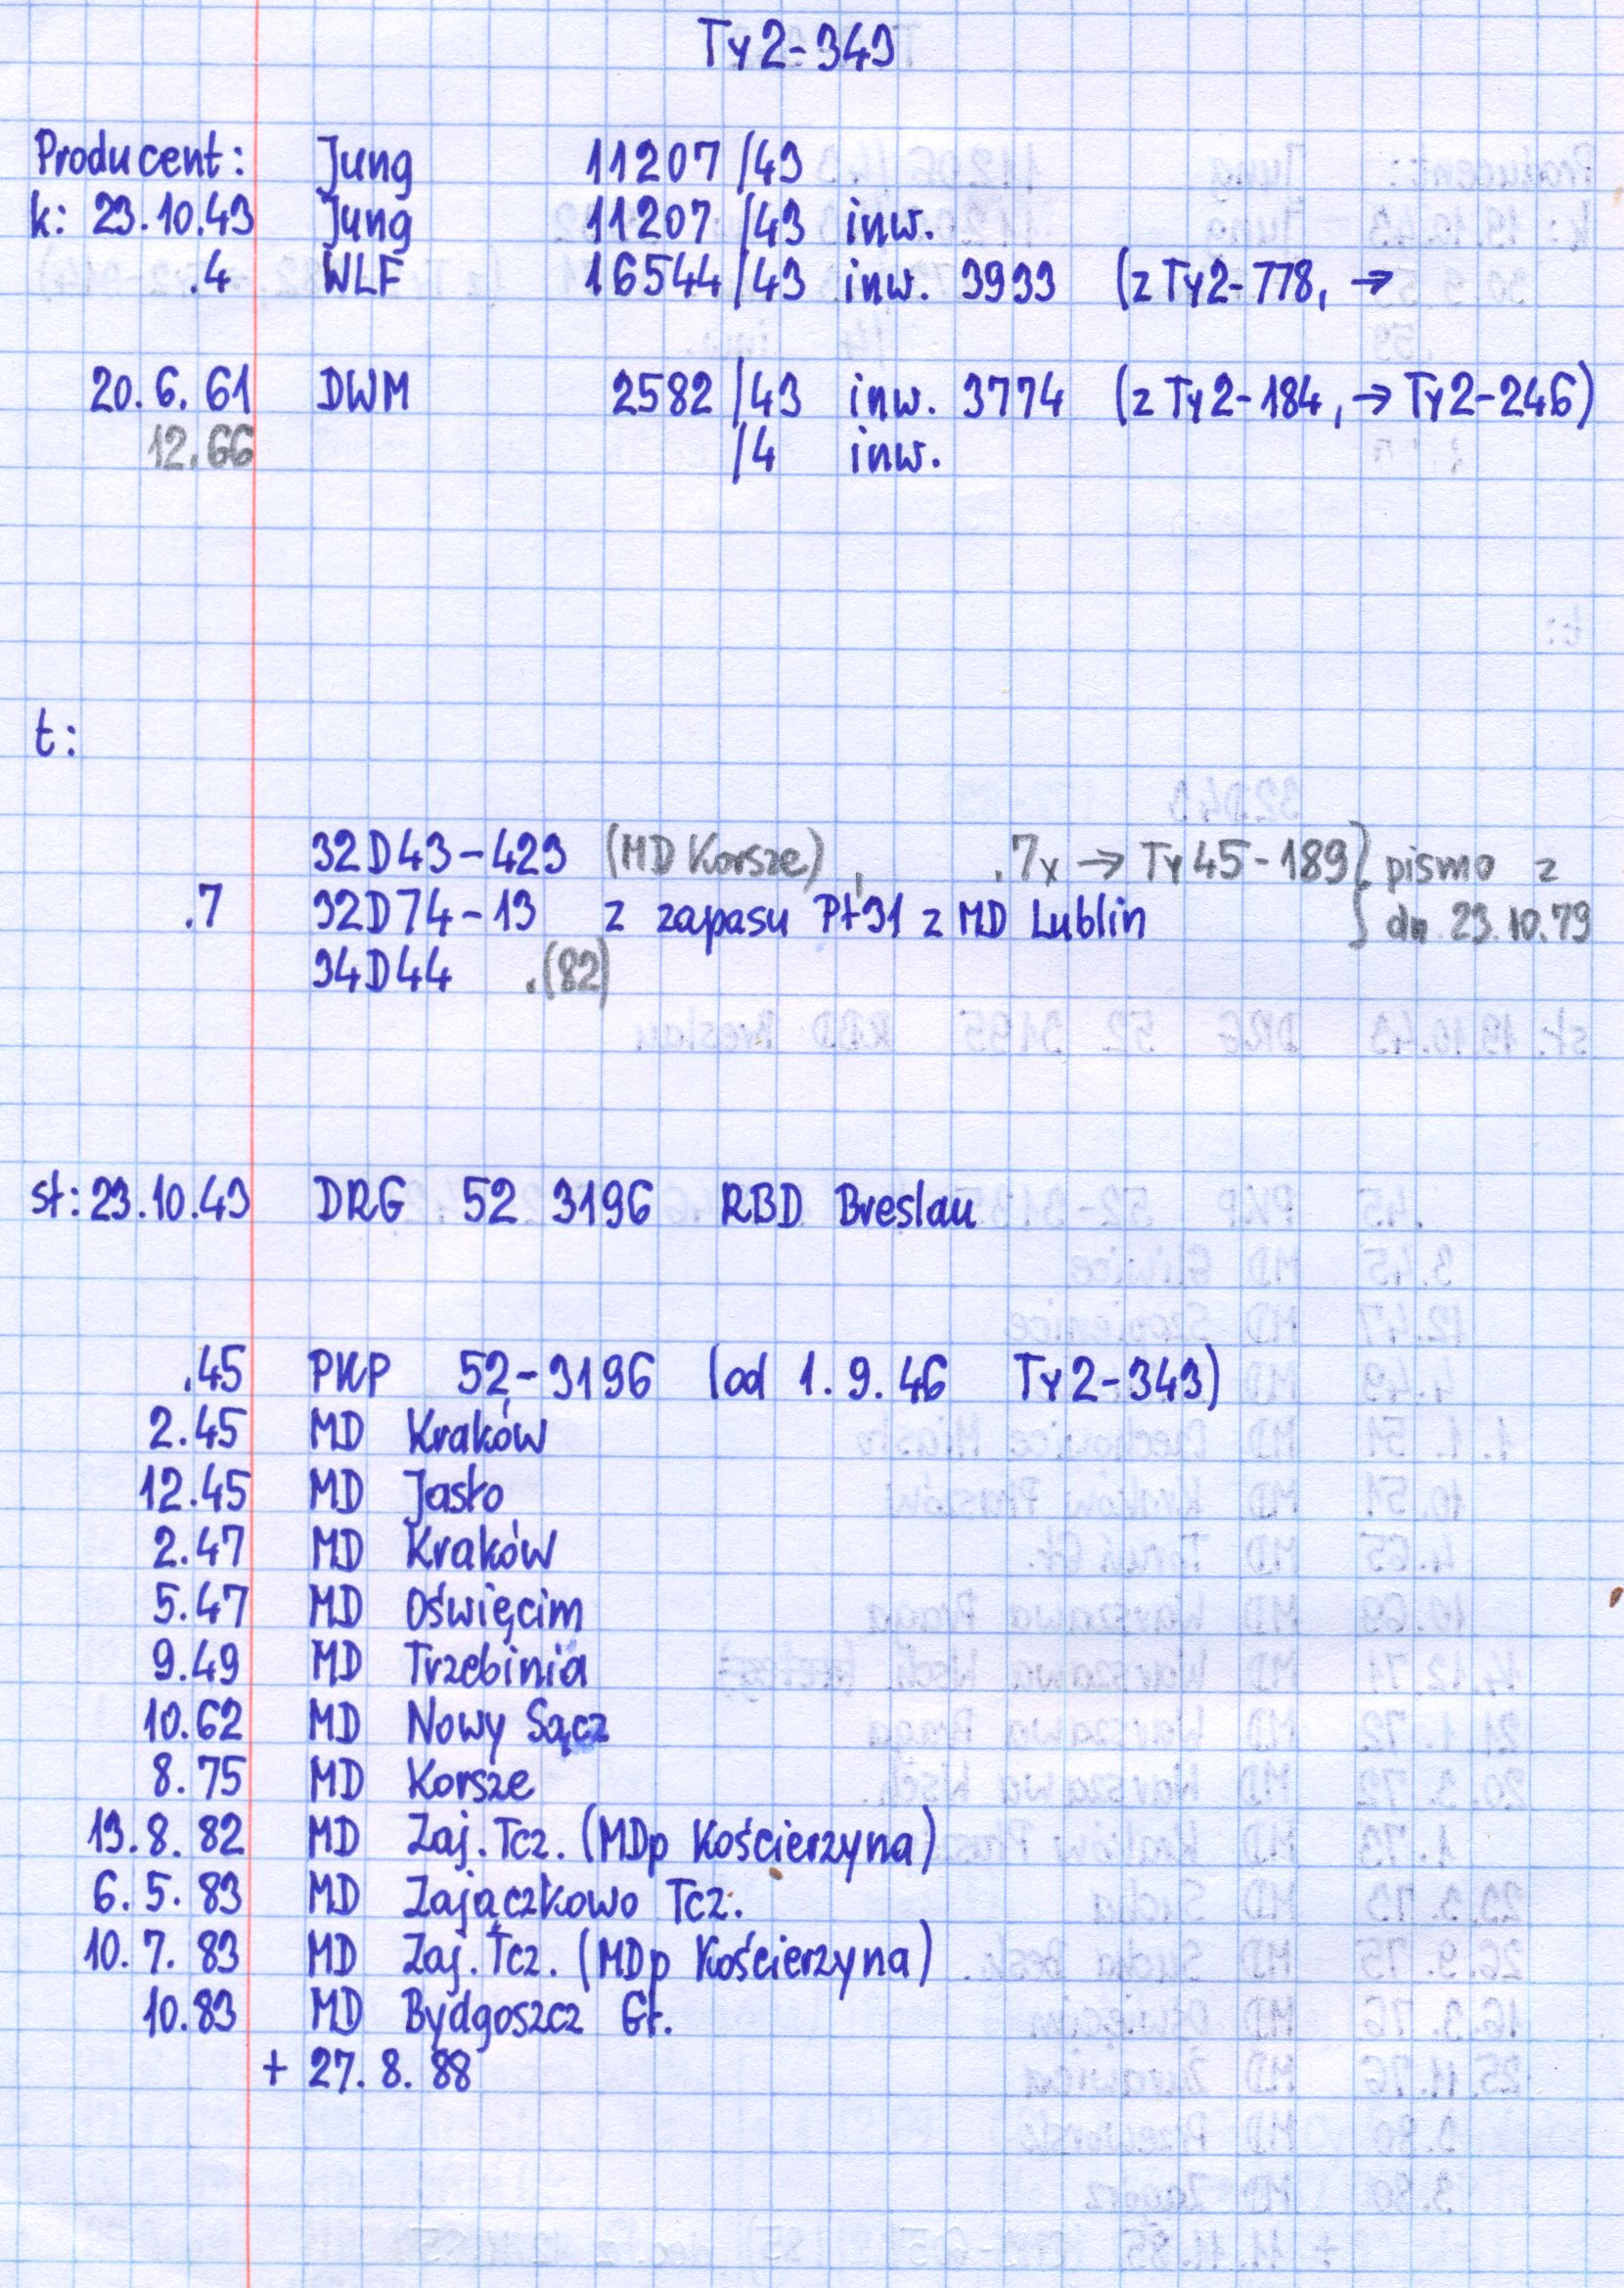 Ty2-343
Producent: Jung 11207/43
k: 23.10.43 Jung 11207/43 inw.
.4 WLF 16544/43 inw. 3933 (z Ty2-778, →
20.6.61 DWM 2582/43 inw. 3774 (z Ty2-184, → Ty2-246)
12.66 /4 inw.
t:
32D43-423 (MD Korsze), .7x → Ty45-189 } pismo z
.7 32D74-13 z zapasu Pt31 z MD Lublin } dn 23.10.79
34D44 .(82)
st: 23.10.43 DRG 52 3196 RBD Breslau
.45 PKP 52-3196 (od 1.9.46 Ty2-343)
2.45 MD Kraków
12.45 MD Jasło
2.47 MD Kraków
5.47 MD Oświęcim
9.49 MD Trzebinia
10.62 MD Nowy Sącz
8.75 MD Korsze
13.8.82 MD Zaj. Tcz. (MDp Kościerzyna)
6.5.83 MD Zajączkowo Tcz.
10.7.83 MD Zaj. Tcz. (MDp Kościerzyna)
10.83 MD Bydgoszcz Gł.
+ 27.8.88